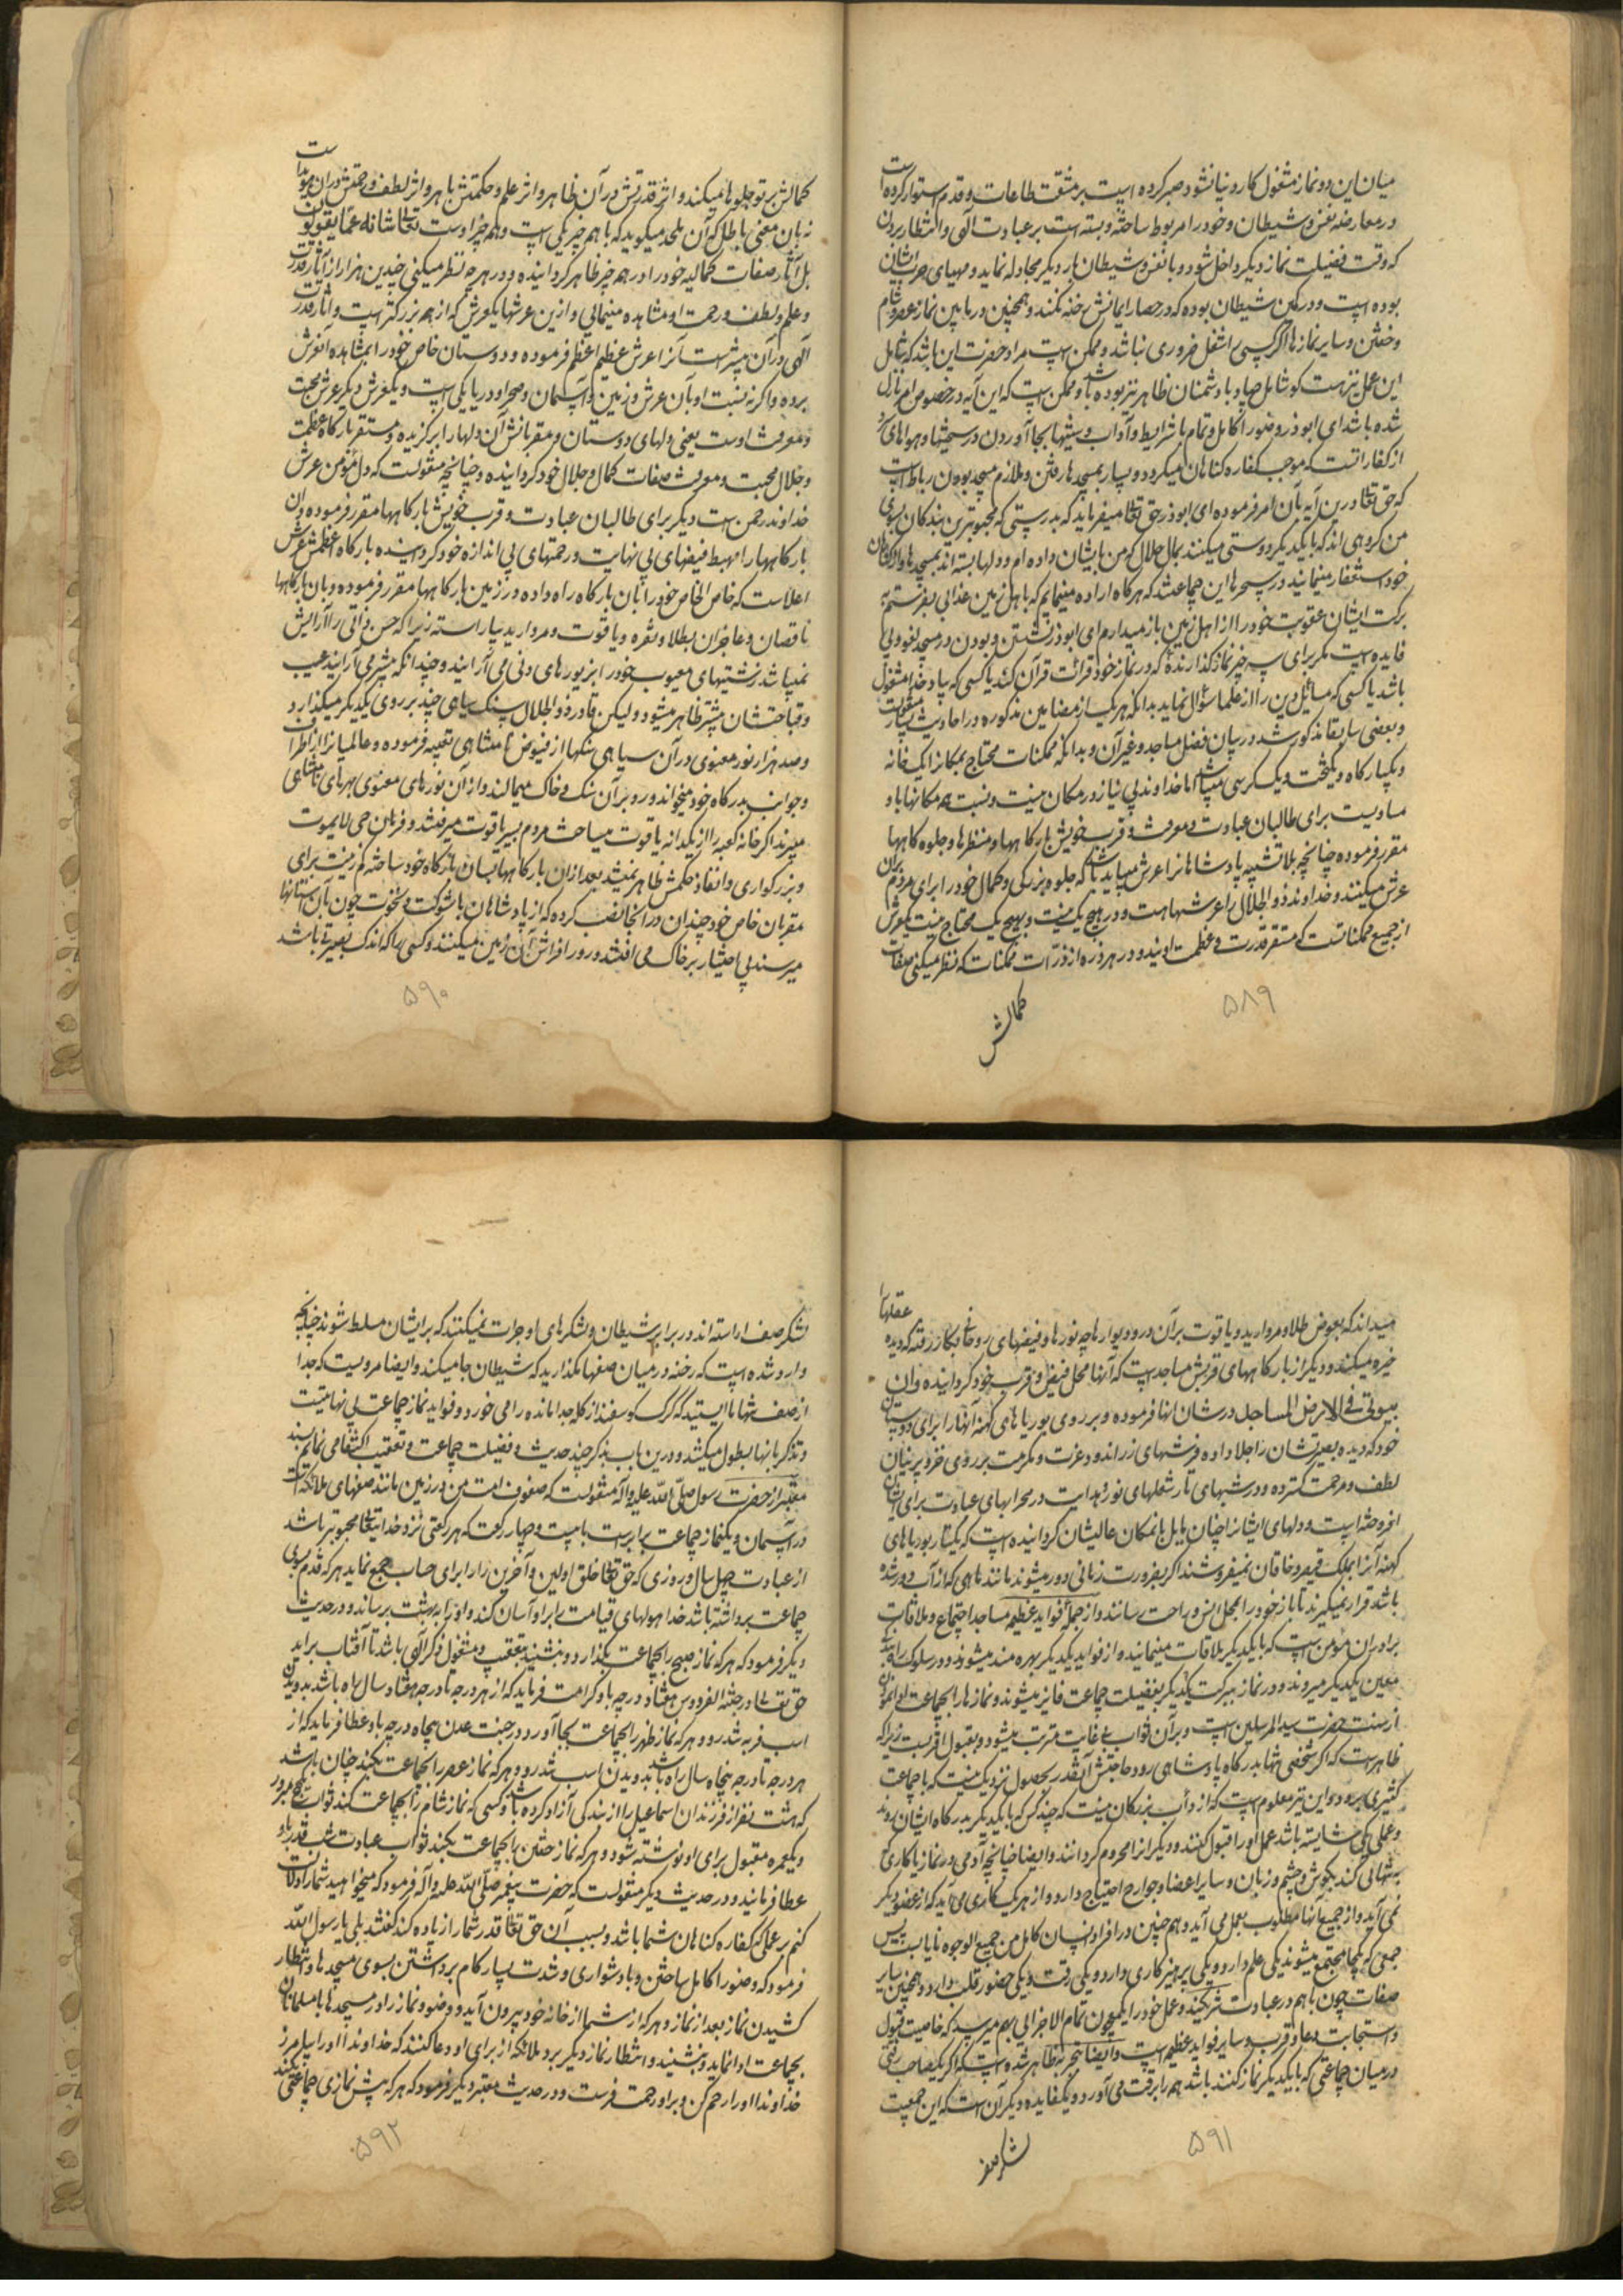 میان این دو نماز مشغول کار دنیا نشود صبر کرده است بر مشقت طاعات و قدم استوار کرده است
در معارضه نفس و شیطان و خود را مربوط ساخته و بسته است بر عبادت الهی و انتظار بردن
که وقت فضیلت نماز دیگر داخل شود و با نفس و شیطان بار دیگر مجادله نماید و مهیای حرب ایشان
بوده است و در کمین شیطان بوده که در حصار ایمانش رخنه نکند و همچنین در مابین نماز عصر و شام
و خفتن و سایر نمازها اگر کسی را شغل ضروری نباشد و ممکن است مراد حضرت این باشد که شامل
این عمل نیز هست گو شامل جهاد با دشمنان ظاهر نیز بوده باشد و ممکن است که این آیه در خصوص امر نازل
شده باشد ای ابوذر وضو را کامل و تمام با شرایط و آداب و سنتها بجا آوردن در سختیها و هواهای سرد
از کفاراتست که موجب کفاره گناهان میگردد و بسیار بمسجدها رفتن و ملازم مسجد بودن رباط است
که حق تعالی در این آیه بآن امر فرموده ای ابوذر حق تعالی میفرماید که بدرستی که محبوبترین بندگان بسوی
من گروهی اند که با یکدیگر دوستی میکنند بمال حلال که من بایشان داده ام و دلها بسته اند بمسجدها و از گناهان
خود استغفار مینمایند در سحرها این جماعتند که هرگاه اراده مینمایم که باهل زمین عذابی بفرستم به
برکت ایشان عقوبت خود را از اهل زمین باز میدارم ای ابوذر نشستن و بودن در مسجد لغو و بی
فایده است مگر برای سه چیز نماز گذارنده که در نماز خود قرائت قرآن کند یا کسی که بیاد خدا مشغول
باشد یا کسی که مسائل دین را از علما سؤال نماید بدانکه هر یک از مضامین مذکوره در احادیث بسیار منقولست
و بعضی سابقا مذکور شد در بیان فضل مساجد و غیر آن و بدانکه ممکنات محتاج بمکانرا یک خانه
و یکبارگاه و یکتخت و یک کرسی میباشد اما خداوند بی نیاز در مکان نیست و نسبت همه مکانها باو
مساویست برای طالبان عبادت و معرفت و قرب خویش بارگاهها و منظرها و جلوه گاهها
مقرر فرموده چنانچه بلا تشبیه پادشاهانرا عرش میباید باشد که جلوه بزرگی و کمال خود را برای مردم بران
عرش میکنند و خداوند ذو الجلال را عرشهاست و در هیچ یک نیست و بهیچ یک محتاج نیست یکعرش
از جمیع ممکناتست که مستقر قدرت و عظمت اویند و در هر ذره از ذرات ممکنات که نظر میکنی صفات
کمالش
۵۸۹
کمالش بر تو جلوها میکند و اثر قدرتش در آن ظاهر و اثر علم و حکمتش باهر و اثر لطف و رحمتش در آن هویداست
نه بآن معنی باطل که آن ملحد میگوید که با هم چیز یکی است و هم چیز اوست تعالی شانه عما یقولون
بل آثار صفات کمالیه خود را در هم چیز ظاهر گردانیده و در هر چه نظر میکنی چندین هزار از آثار قدرت
و علم و لطف و رحمت او مشاهده مینمائی و از این عرشها یکعرش که از همه بزرگتر است و آثار قدرت
الهی در آن بیشتر است آنرا عرش عظیم اعظم فرموده و دوستان خاص خود را بمشاهده آنعرش
برده و اگر نه نسبت او بآن عرش و زمین و آسمان و صحرا و دریا یکی است و یکعرش دیگر عرش محبت
و معرفت اوست یعنی دلهای دوستان و مقربانش آن دلها را برگزیده و مستقر بارگاه عظمت
و جلال محبت و معرفت صفات کمال و جلال خود گردانیده و چنانچه منقولست که دل مؤمن عرش
خداوند رحمن است دیگر برای طالبان عبادت و قرب خویش بارگاهها مقرر فرموده و ان
بارگاهها را مهبط فیضهای بی نهایت و رحمتهای بی اندازه خود گردانیده بارگاه اعظمش عرش
اعلاست که خاص الخاص خود را بآن بارگاه راه داده و در زمین بارگاهها مقرر فرموده و بان بارگاهها
ناقصان و عاجزان بطلا و نقره و یاقوت و مروارید بیاراسته زیرا که حسن ذاتی را آرایش
نمیباشد زشتیهای معیوب خود را بزیورهای دنی می آرایند و چندانکه بیشتر می آرایند عیب
و قباحتشان بیشتر ظاهر میشود و لیکن قادر ذو الجلال سنک سیاهی چند بر روی یکدیگر میگذارد
و صد هزار نور معنوی در آن سیاهی سنگها از فیوض نامتناهی تعبیه فرموده و عالمیانرا از اطراف
و جوانب بدرگاه خود میخواند و رو بر آن سنک و خاک میمالند و از آن نورهای معنوی بهرهای نامتناهی
میبرند اگر خانه کعبه را از یکدانه یاقوت میساخت مردم بسیر یاقوت میرفتند و فرمان حی لایموت
و بزرگواری و انقاذ حکمش ظاهر نمیشد بعد از ان بارگاهها بسان بارگاه خود ساخته که زینت برای
مقربان خاص خود چندان در آنجا نصب کرده که از پادشاهان با شوکت و نخوت چون بآن آستانها
میرسند بی اختیار بر خاک می افتند و رو را فرش آن زمین میکنند و کسی را که اندک بصیرتی باشد
۵۹۰
میداند که بعوض طلا و مروارید و یاقوت بر آن در و دیوارها چه نورها و فیضهای روحانی بکار رفته که دیده عقلها را
خیره میکند و دیگر از بارگاههای قربش مساجد است که آنها محل فیض و قرب خود گردانیده و ان
بیوتی فی الارض المساجد در شان انها فرموده و بر روی بوریاهای کهنه آنها را برای دوستان
خود که دیده بصیرتشان را جلا داده فرشهای زر اندود عزت و مکرمت بر روی خز و پرنیان
لطف و مرحمت گسترده و در شبهای تار شعلهای نور هدایت در محرابهای عبادت برای ایشان
افروخته است و دلهای ایشانرا چنان مایل بامکان عالیشان گردانیده است که یکتار بوریاهای
کهنه آنرا بملک قیصر و خاقان نمیفروشند اگر بضرورت زمانی دور میشوند مانند ماهی که از آب دور شده
باشد قرار نمیگیرند تا باز خود را بمحل انس و راحت رسانند و از جمله فواید عظیمه مساجد اجتماع و ملاقات
برادران مؤمن است که با یکدیگر ملاقات مینمایند و از فواید یکدیگر بهره مند میشوند و در سلوک راه بندگی
معین یکدیگر میروند و در نماز ببرکت یکدیگر بفضیلت جماعت فایز میشوند و نمازها را بجماعت ادا نمودن
از سنت حضرت سید المرسلین است و بر آن ثواب بی غایت مترتب میشود و بقبول اقربست زیرا که
ظاهر است که اگر شخصی تنها بدرگاه پادشاهی رود حاجتش آنقدر بحصول نزدیک نیست که با جماعت
کثیری برود و این نیز معلوم است که از دأب بزرگان نیست که چند کس که با یکدیگر بدرگاه ایشان روند
و عملی یکی شایسته باشد عمل او را قبول کنند و دیگرانرا محروم گردانند و ایضا چنانچه آدمی در نماز یا کاری که
به تنهائی کند بگوش و چشم و زبان و سایر اعضا و جوارح احتیاج دارد و از هر یک کاری می آید که از عضو دیگر
نمی آید و از جمیع آنها مطلوب بعمل می آید و هم چنین در افراد انسان کامل من جمیع الوجوه نایاب است پس
جمعی که یکجا مجتمع میشوند یکی علم دارد و یکی پرهیزکاری دارد و یکی رقت و یکی حضور قلب دارد و همچنین سایر
صفات چون با هم در عبادت شریکند و عمل خود را یکی میچون تمام الاجزائی بهم میرسد که خاصیت قبول
و استجابت دعا و قرب و سایر فواید عظیم است و ایضا بتجربه ظاهر شده است که اگر یکصاحب رقتی
در میان جماعتی که با یکدیگر نماز کنند باشد همه را برقت می آورد و یکفایده دیگر آن است که این جمعیت
لشکر صف
۵۹۱
لشکر صف اراسته اند در برابر شیطان و لشکرهای او جرات نمیکنند که بر ایشان مسلط شوند چنانچه
وارد شده است که رخنه در میان صفها مگذارید که شیطان جا میکند و ایضا مرویست که جدا
از صف تنها نا ایستید که گرگ گوسفند از گله جدا مانده را می خورد و فواید نماز جماعت بی نهایتست
و تذکر بانها بطول میکشد و درین باب بذکر چند حدیث در فضیلت جماعت و تعقیب اکتفا می نمایم بسند
معتبر از حضرت رسول صلی الله علیه و آله منقولست که صفوف امت من در زمین مانند صفهای ملائکه است
در آسمان و یکنماز جماعت برابر است با بیست و چهار رکعت که هر رکعتی نزد خدایتعالی محبوبتر باشد
از عبادت چهل سال و روزی که حق تعالی خلق اولین و آخرین را برای حساب جمع نماید هر که قدم بسوی
جماعت برداشته باشد خدا هولهای قیامت را بر او آسان کند و او را به بهشت برساند و در حدیث
دیگر فرمود که هر که نماز صبح را بجماعت بگذارد و بنشیند بتعقیب و مشغول ذکر الهی باشد تا آفتاب براید
حق تعالی در جنة الفردوس هفتاد درجه باو کرامت فرماید که از هر درجه تا درجه هفتاد سال راه باشد بدویدن
اسب فربه تندرو و هر که نماز ظهر را بجماعت بجا آورد در جنت عدن پنجاه درجه باو عطا فرماید که از
هر درجه تا درجه پنجاه سال راه باشد بدویدن اسب تندرو و هر که نماز عصر را بجماعت بکند چنان باشد
که هشت نفر از فرزندان اسماعیل را از بندگی آزاد کرده باشد و کسی که نماز شام را بجماعت کند ثواب حج مبرور
و یکعمره مقبول برای او نوشته شود و هر که نماز خفتن را بجماعت بکند ثواب عبادت شب قدر باو
عطا فرمایند و در حدیث دیگر منقولست که حضرت پیغمبر صلی الله علیه و آله فرمود که میخواهید شما را دلالت
کنم بر عملی که کفاره گناهان شما باشد و بسبب آن حق تعالی قدر شما را زیاده کند گفتند بلی یا رسول الله
فرمود که وضو را کامل ساختن و با دشواری و شدت بسیار گام برداشتن بسوی مسجدها و انتظار
کشیدن نماز بعد از نماز و هر که از شما از خانه خود بیرون آید و وضو و نماز را در مسجدها با مسلمانان
بجماعت ادا نماید و بنشیند و انتظار نماز دیگر برد ملائکه از برای او دعا کنند که خداوندا او را بیامرز
خداوندا او را رحم کن و بر او رحمت فرست و در حدیث معتبر دیگر فرمود که هر که پیش نمازی جماعتی بکند
۵۹۲